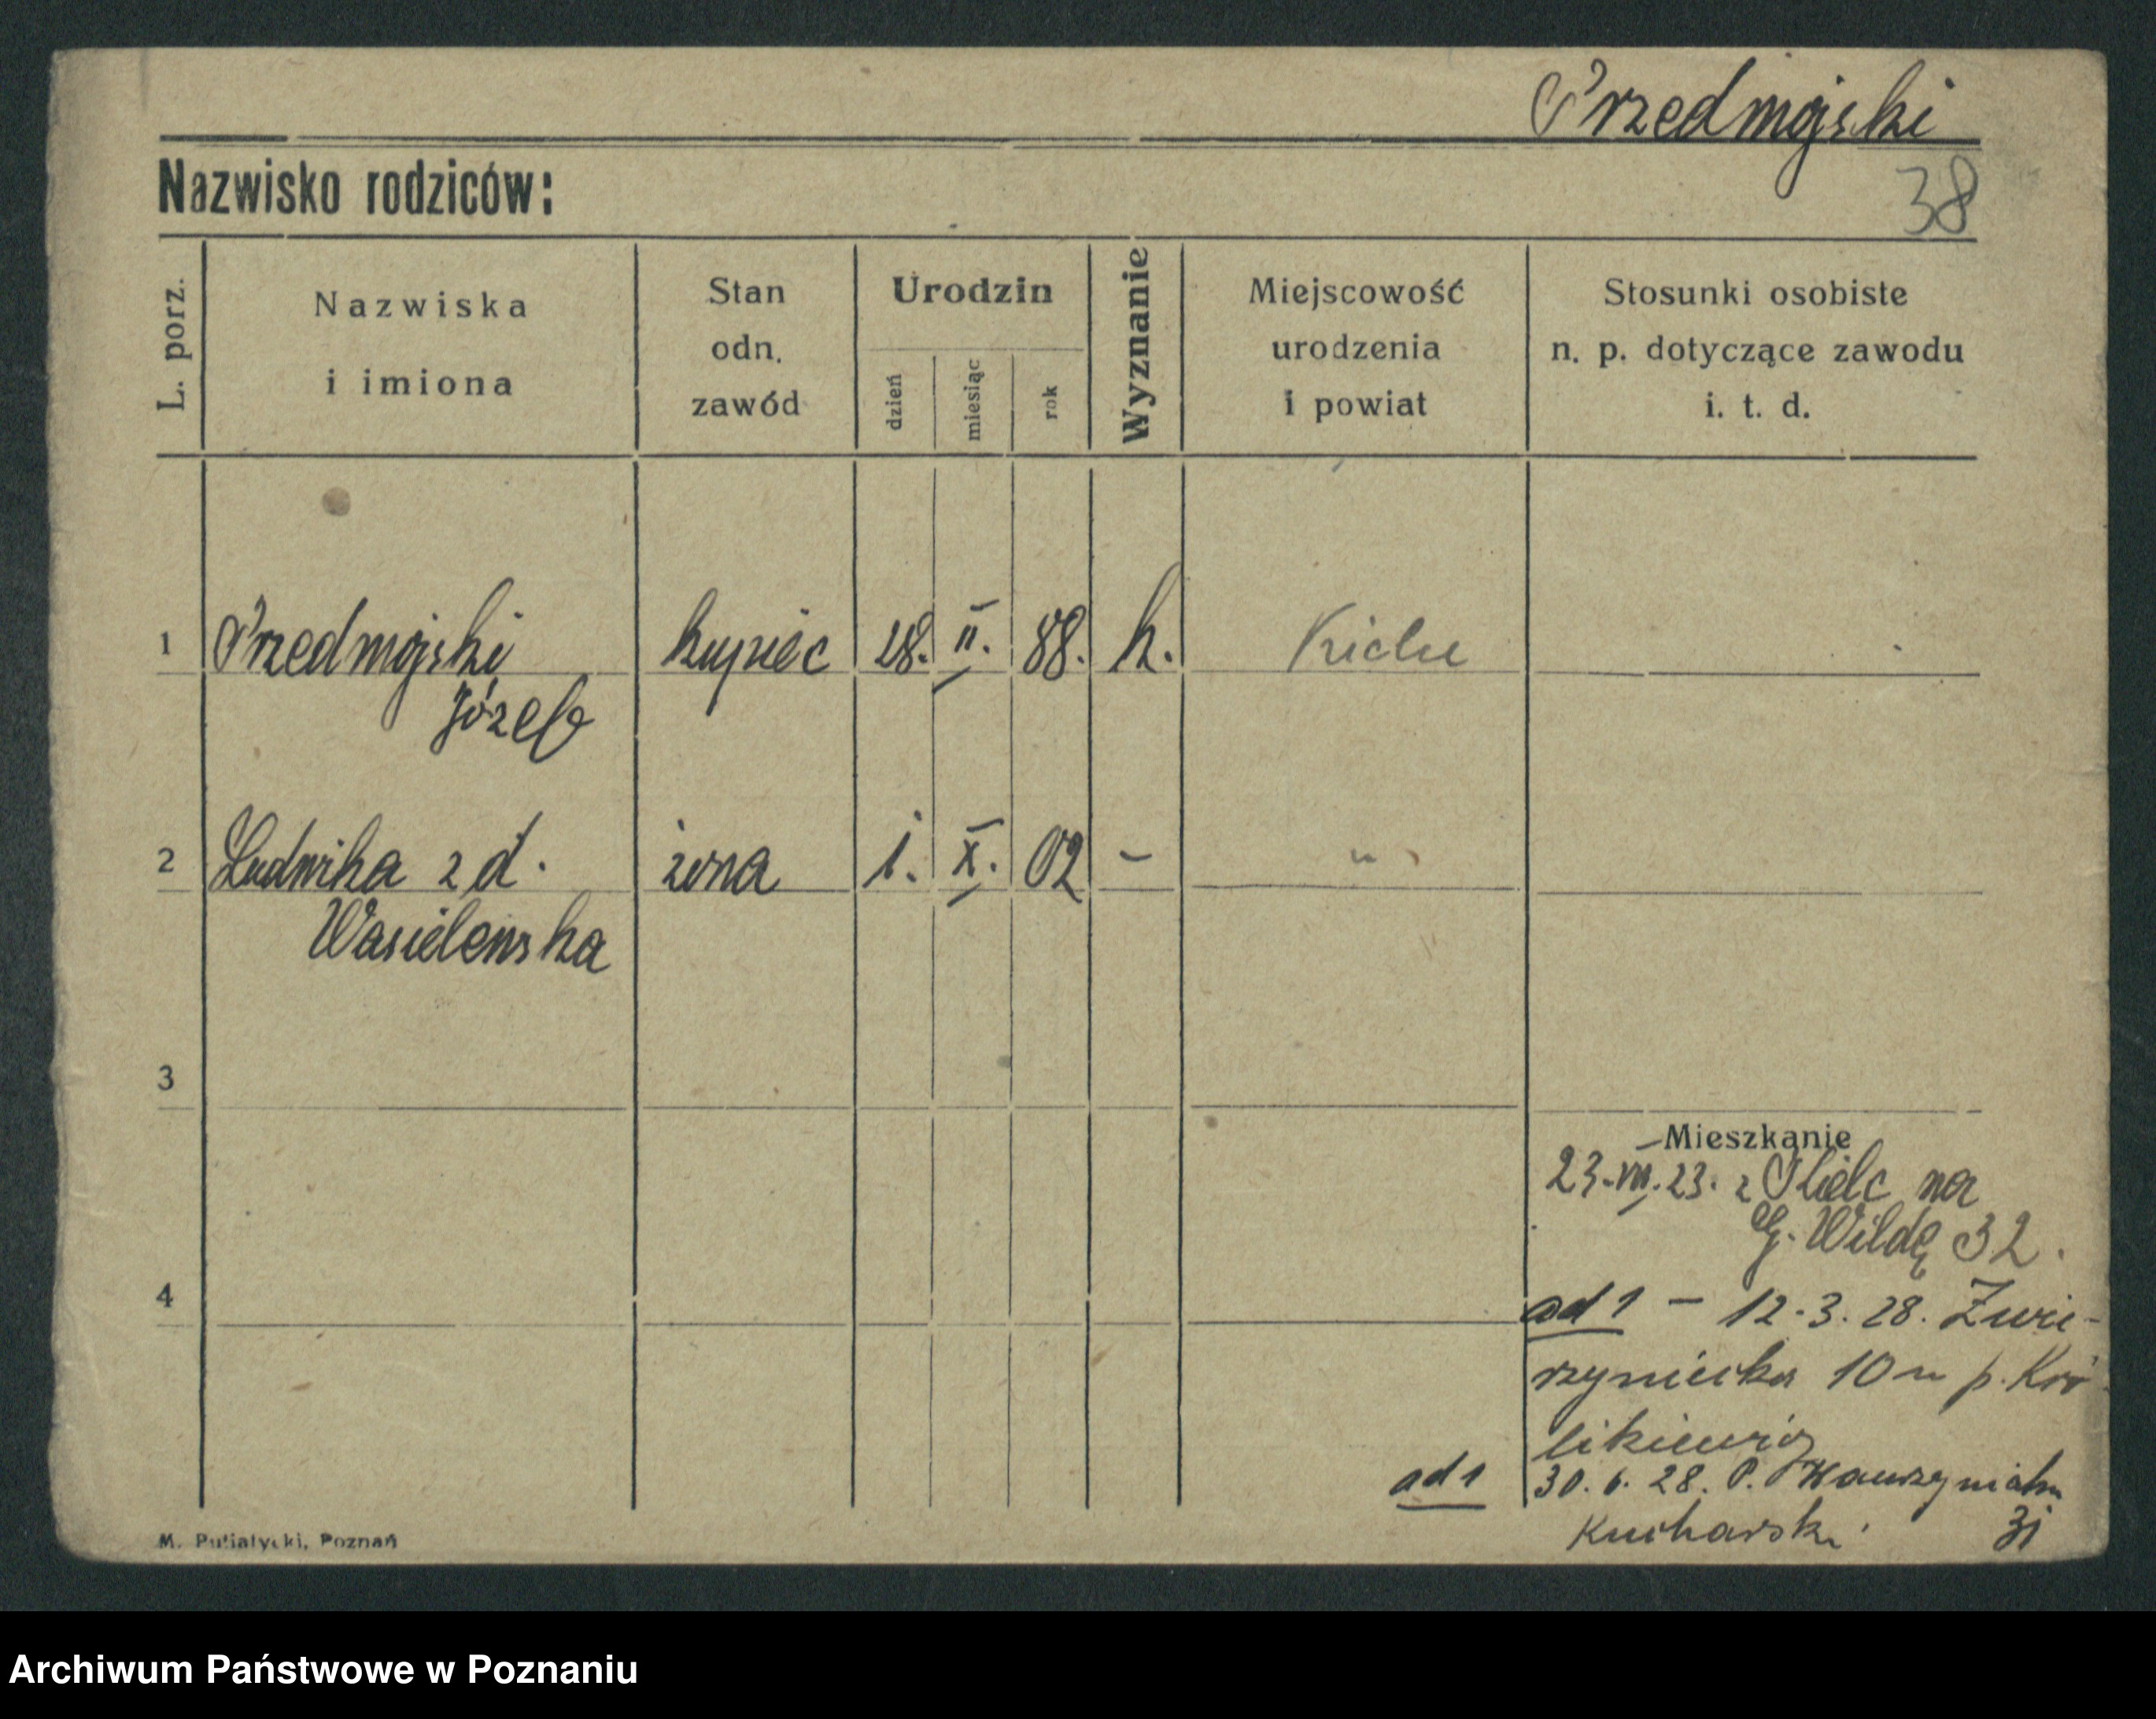 Przedmojski
Nazwisko rodziców:
38
L. porz.
Nazwiska
i imiona
Stan
odn.
zawód
Urodzin
dzień
miesiąc
rok
Wyznanie
Miejscowość
urodzenia
i powiat
Stosunki osobiste
n. p. dotyczące zawodu
i. t. d.
1 Przedmojski kupiec 28. II. 88. k. Kielce
Józef
2 Ludwika z d. żona 1. X. 02 – "
Wasielewska
3
Mieszkanie
23.VII.23. z Kielc na
G. Wildę 32.
4
ad 1 – 12.3.28. Zwie-
rzyniecka 10 u p. Kró-
likiewicz
ad 1 30.6.28. P. Wawrzyniaka
Kucharski 31
M. Putiatycki, Poznań
Archiwum Państwowe w Poznaniu